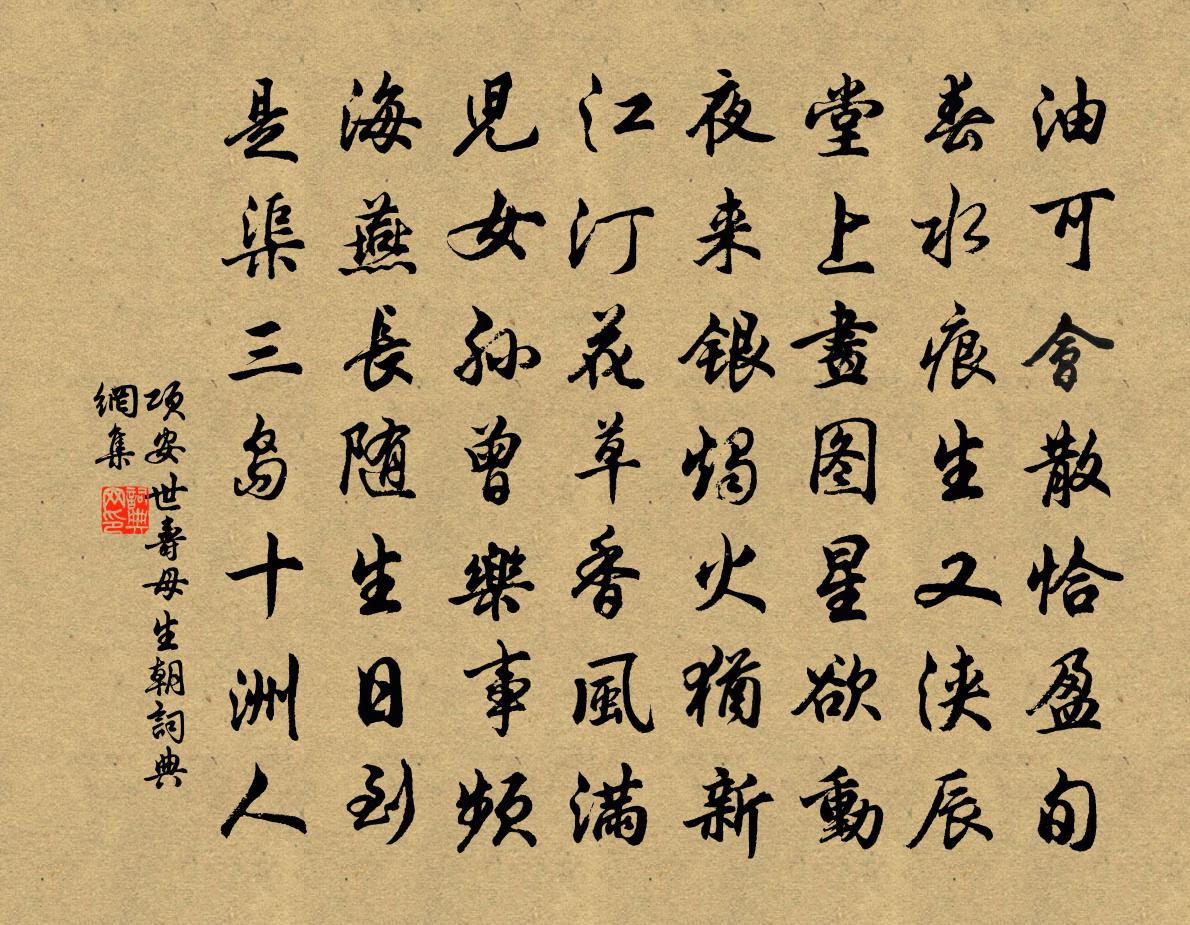 油可會散恰盈旬
春水痕生又浹辰
堂上畫图星欲動
夜来銀燭火猶新
江汀花草香風滿
児女孙曾樂事頻
海燕長随生日到
是渠三島十洲人
項安世壽母生朝詞典
網集
詞典
网印